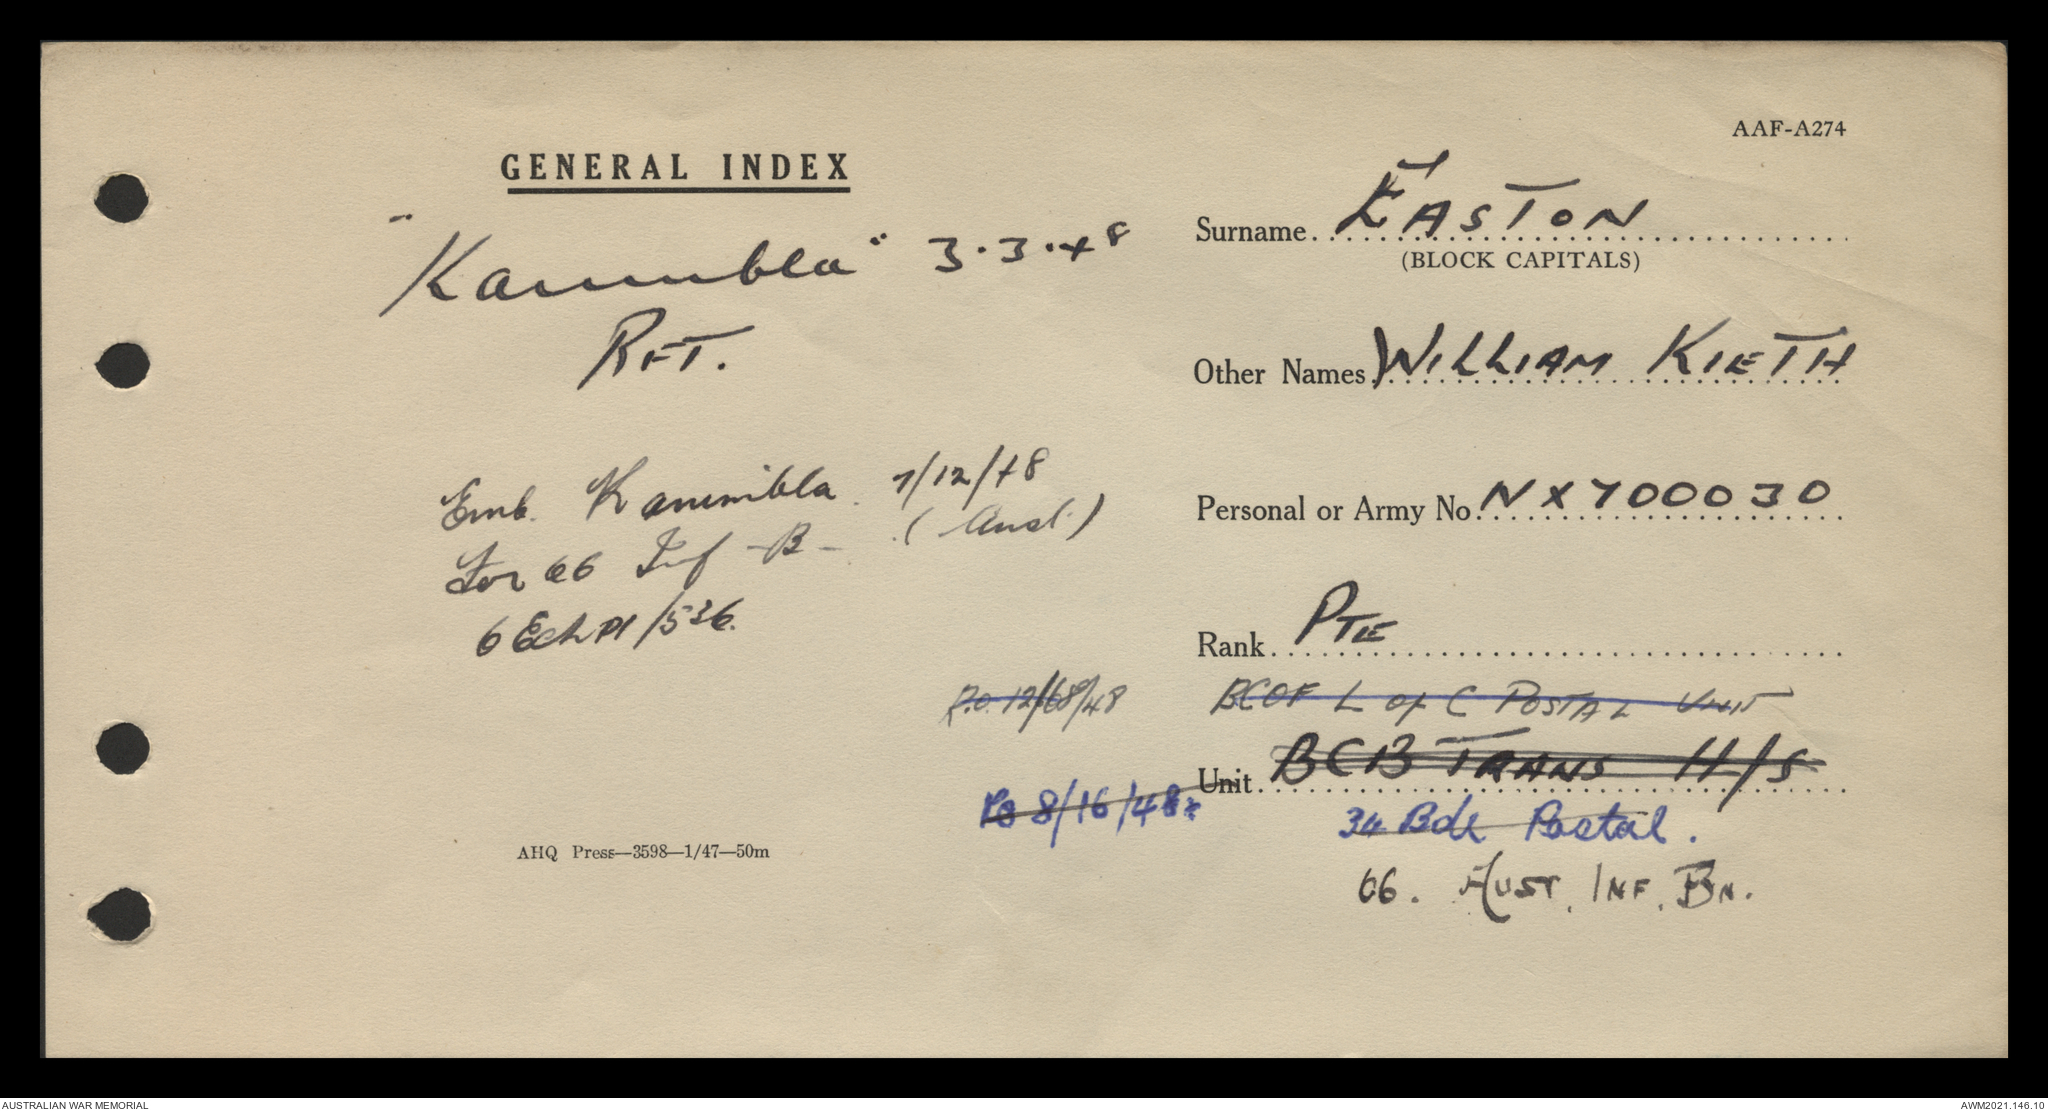 AAF-A274
GENERAL INDEX
"Kanimbla" 3.3.48
RFT.
Surname EASTON
(BLOCK CAPITALS)
Other Names WILLIAM KIETH
Personal or Army No NX700030
Emb. Kanimbla 7/12/48
(Aust.)
For 66 Inf B
6 Ech Pl/536.
Rank PTE
P.O. 12/68/48 BCOF L of C POSTAL UNIT
Unit BCB TRANS H/S
Po 8/16/48
34 Bde Postal.
66. AUST. INF. BN.
AHQ Press—3598—1/47—50m
AUSTRALIAN WAR MEMORIAL
AWM2021.146.10